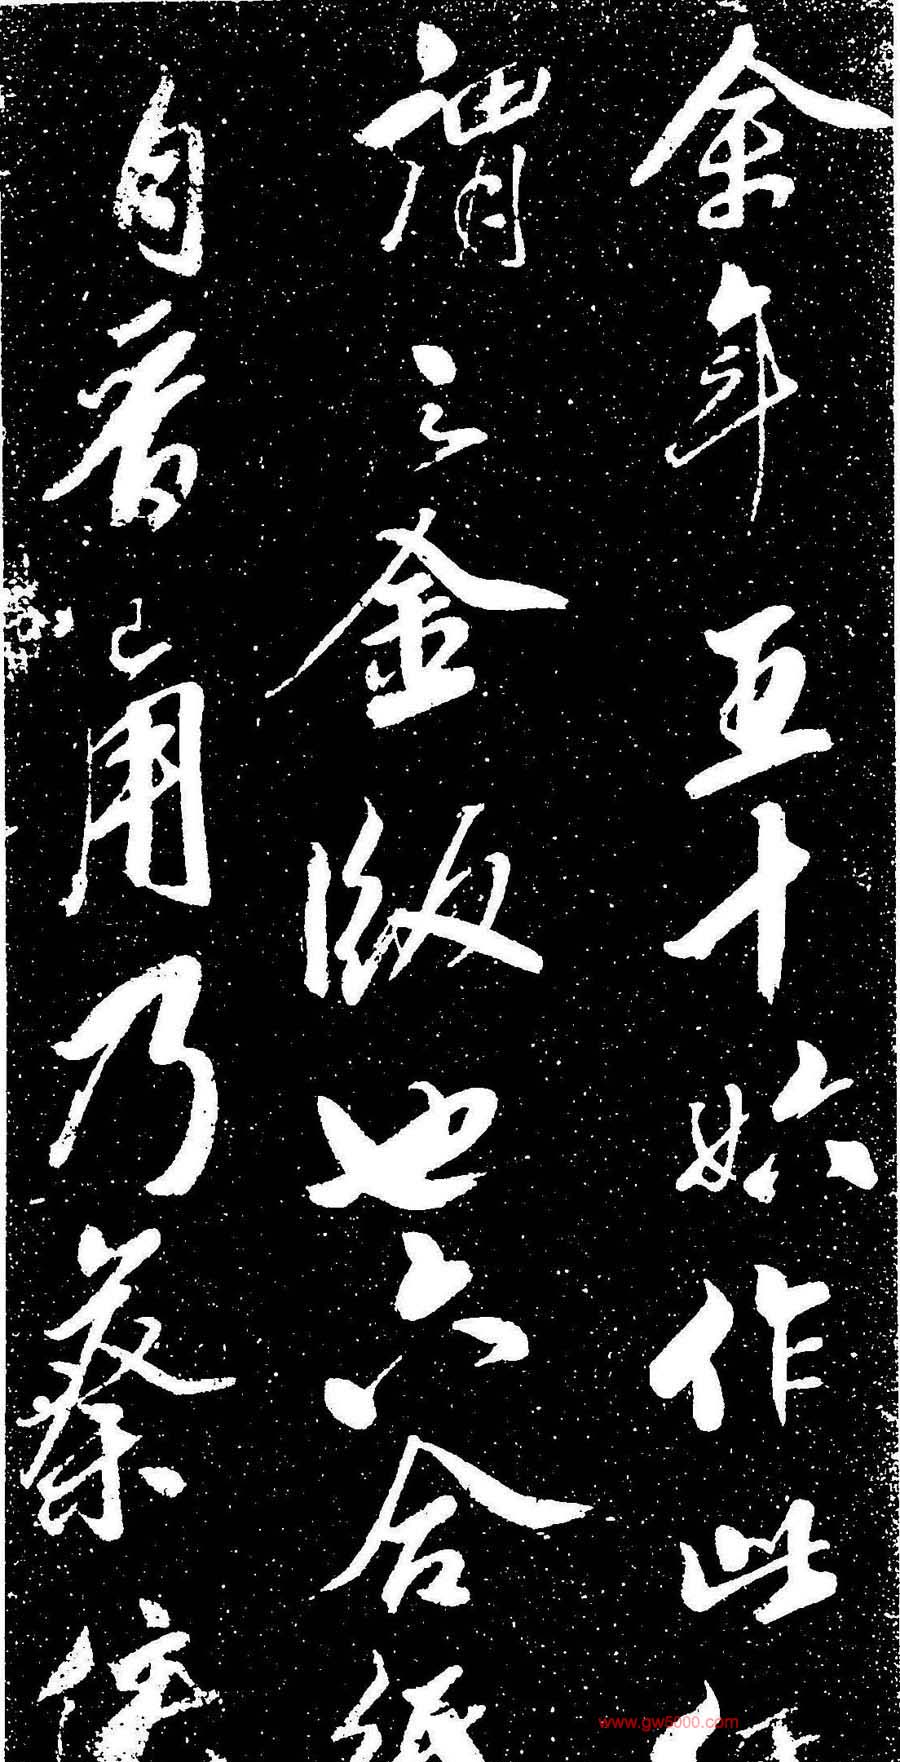 余年五十始作此
謂之金版也六合紙
自晉已用乃蔡侯
www.gw5000.com